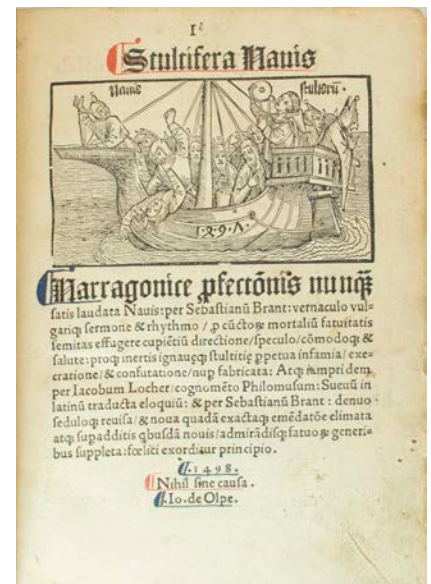 1ᶜ
Stultifera Nauis
Nauis stultorū.
1.4.9.Λ.
Narragonice ꝓfectōnis nunqꝫ
satis laudata Nauis: per Sebastianū Brant: vernaculo vul-
gariqꝫ sermone & rhythmo / ꝓ cūctoꝝ mortaliū fatuitatis
semitas effugere cupiētiū directione / speculo / cōmodoqꝫ &
salute: proqꝫ inertis ignauęqꝫ stultitię ꝑpetua infamia / exe-
cratione / & confutatione / nuꝑ fabricata: Atqꝫ iāpridem
per Iacobum Locher / cognomēto Philomusum: Sueuū in
latinū traducta eloquiū: & per Sebastianū Brant: denuo
seduloqꝫ reuisa / & noua quadā exactaqꝫ emēdatōe elimata
atqꝫ supadditis qbusdā nouis / admirādisqꝫ fatuoꝝ generi-
bus suppleta: fœlici exorditur principio.
.1498.
Nihil sine causa.
.Io. de Olpe.